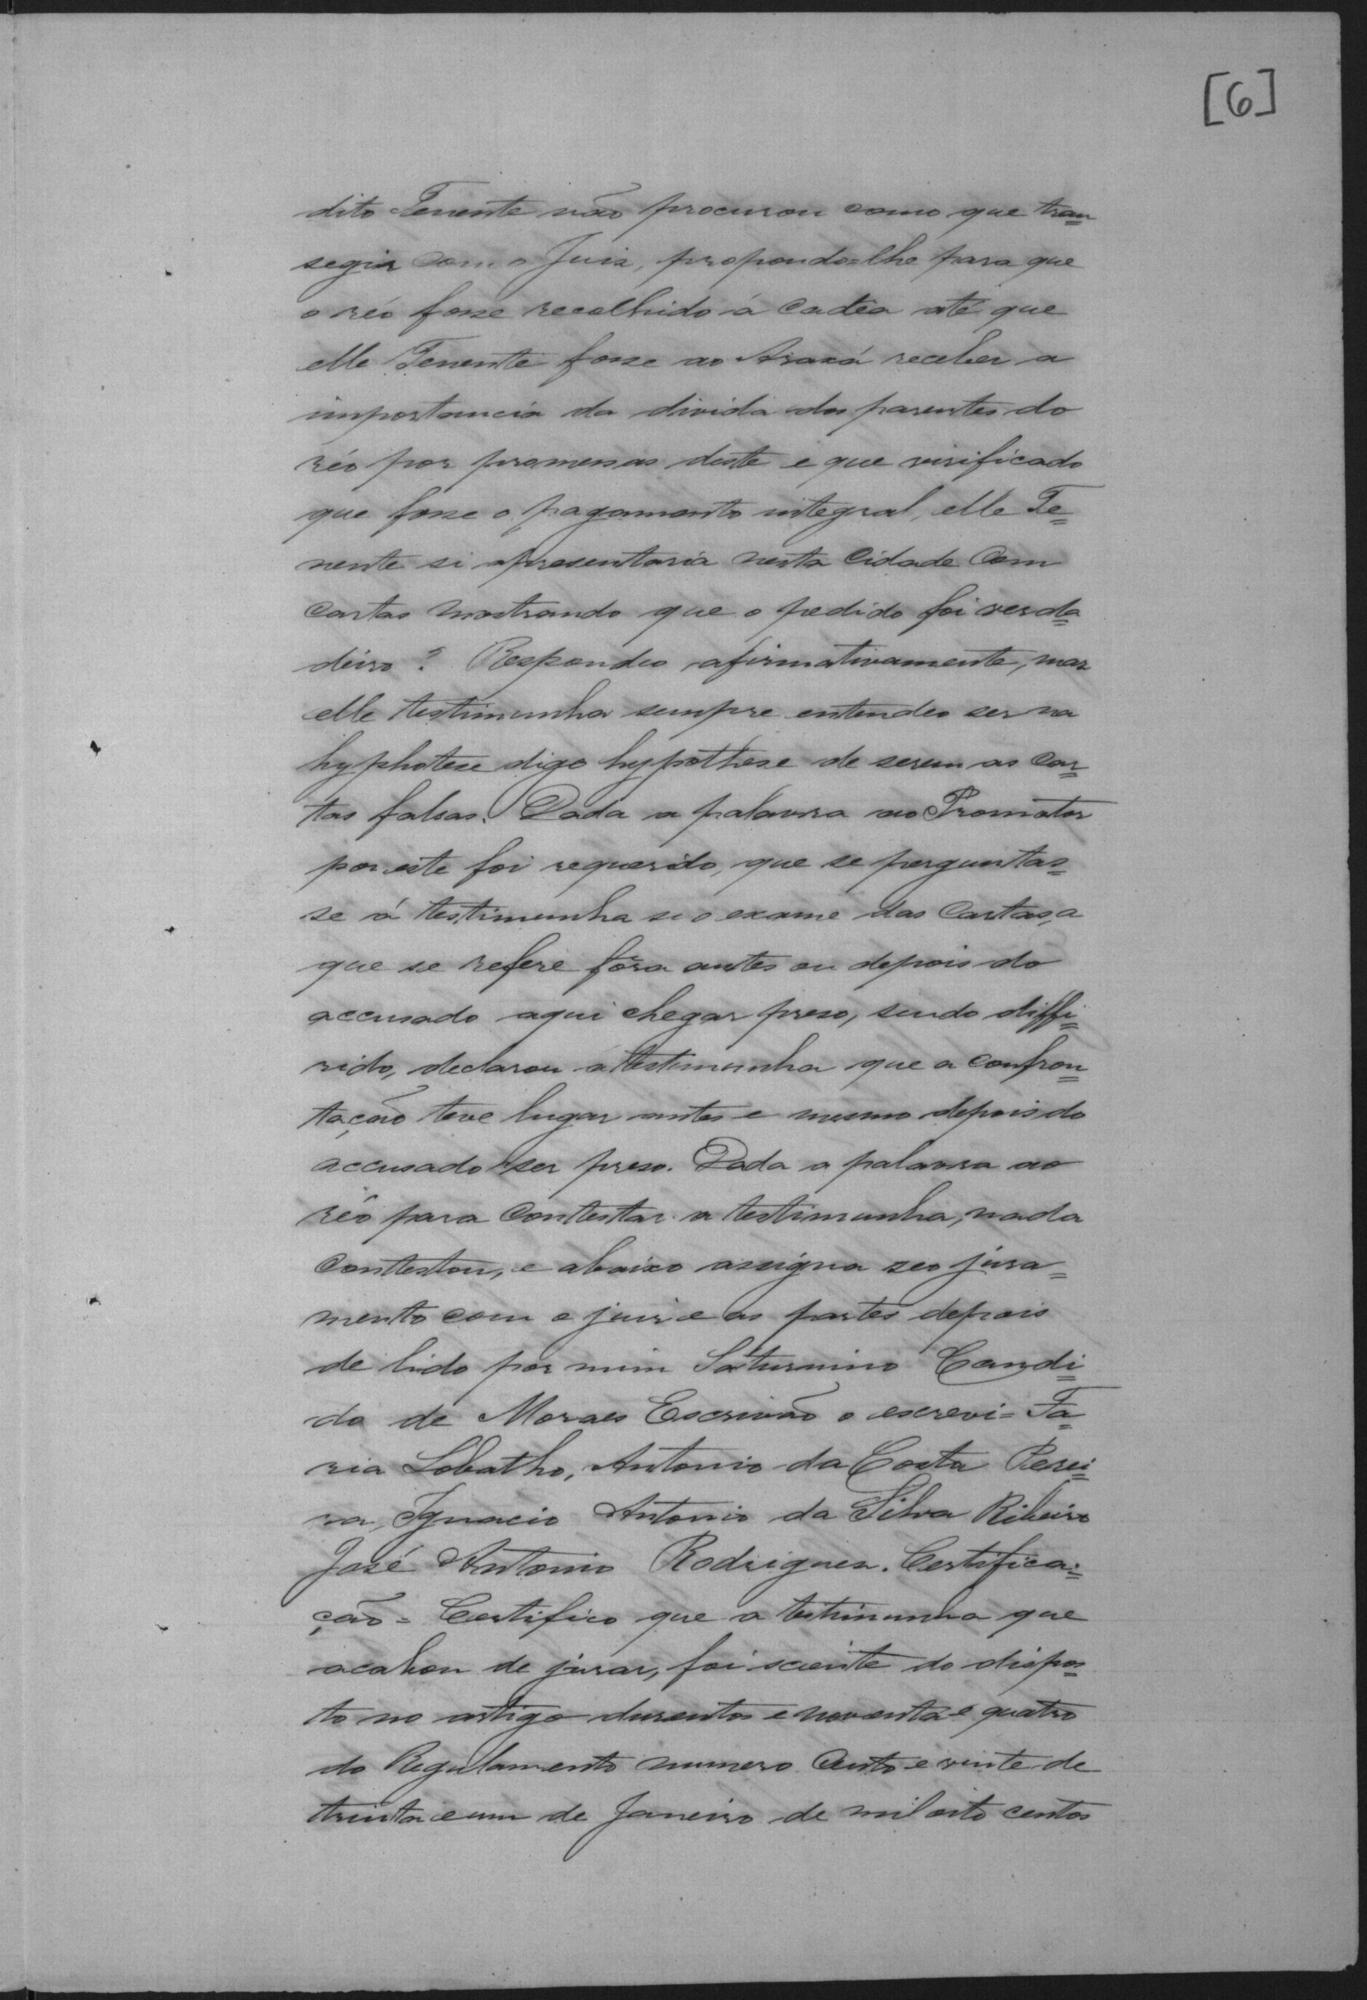 [6]
dito Tenente não procurou como que tran=
segir com o Juiz, propondo=lhe para que
o réo fosse recolhido á cadêa até que
elle Tenente fosse ao Araxá receber a
importancia da divida dos parentes do
réo por promessas deste e que virificado
que fosse o pagamento integral, elle Te=
nente si apresentaria nesta Cidade Com
Cartas mostrando que o pedido foi verda=
deiro? Respondeo afirmativamente, mas
elle testimunha sempre entendeo ser na
hyphotese digo hypothese de serem as Car=
tas falsas. Dada a palavra ao Promotor
por este foi requerido, que se perguntas=
se á testimunha si o exame das Cartas, a
que se refere fôra antes ou depois do
accusado aqui chegar preso, sendo diffi=
rido, declarou a testimunha que a confron=
tação teve lugar antes e mesmo depois do
accusado ser preso. Dada a palavra ao
réo para Contestar a testimunha, nada
Contestou, e abaixo assigna seo jura=
mento com o juiz e as partes depois
de lido por mim Saturnino Candi=
do de Moraes Escrivão o escrevi= Fa=
ria Lobatho, Antonio da Costa Perei=
ra, Ignacio Antonio da Silva Ribeiro
José Antonio Rodrigues. Certifica=
ção= Certifico que a testimunha que
acabou de jurar, foi sciente do dispos=
to no artigo dusentos e noventa e quatro
do Regulamento numero Cento e vinte de
trinta e um de Janeiro de mil oito centos